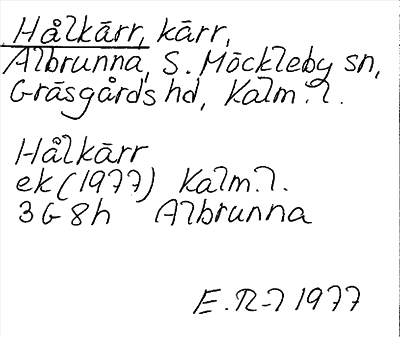 Hålkärr, kärr,
Albrunna, S. Möckleby sn,
Gräsgårds hd, Kalm. l.
Hålkärr
ek (1977) Kalm. l.
3G8h Albrunna
E. R-l 1977